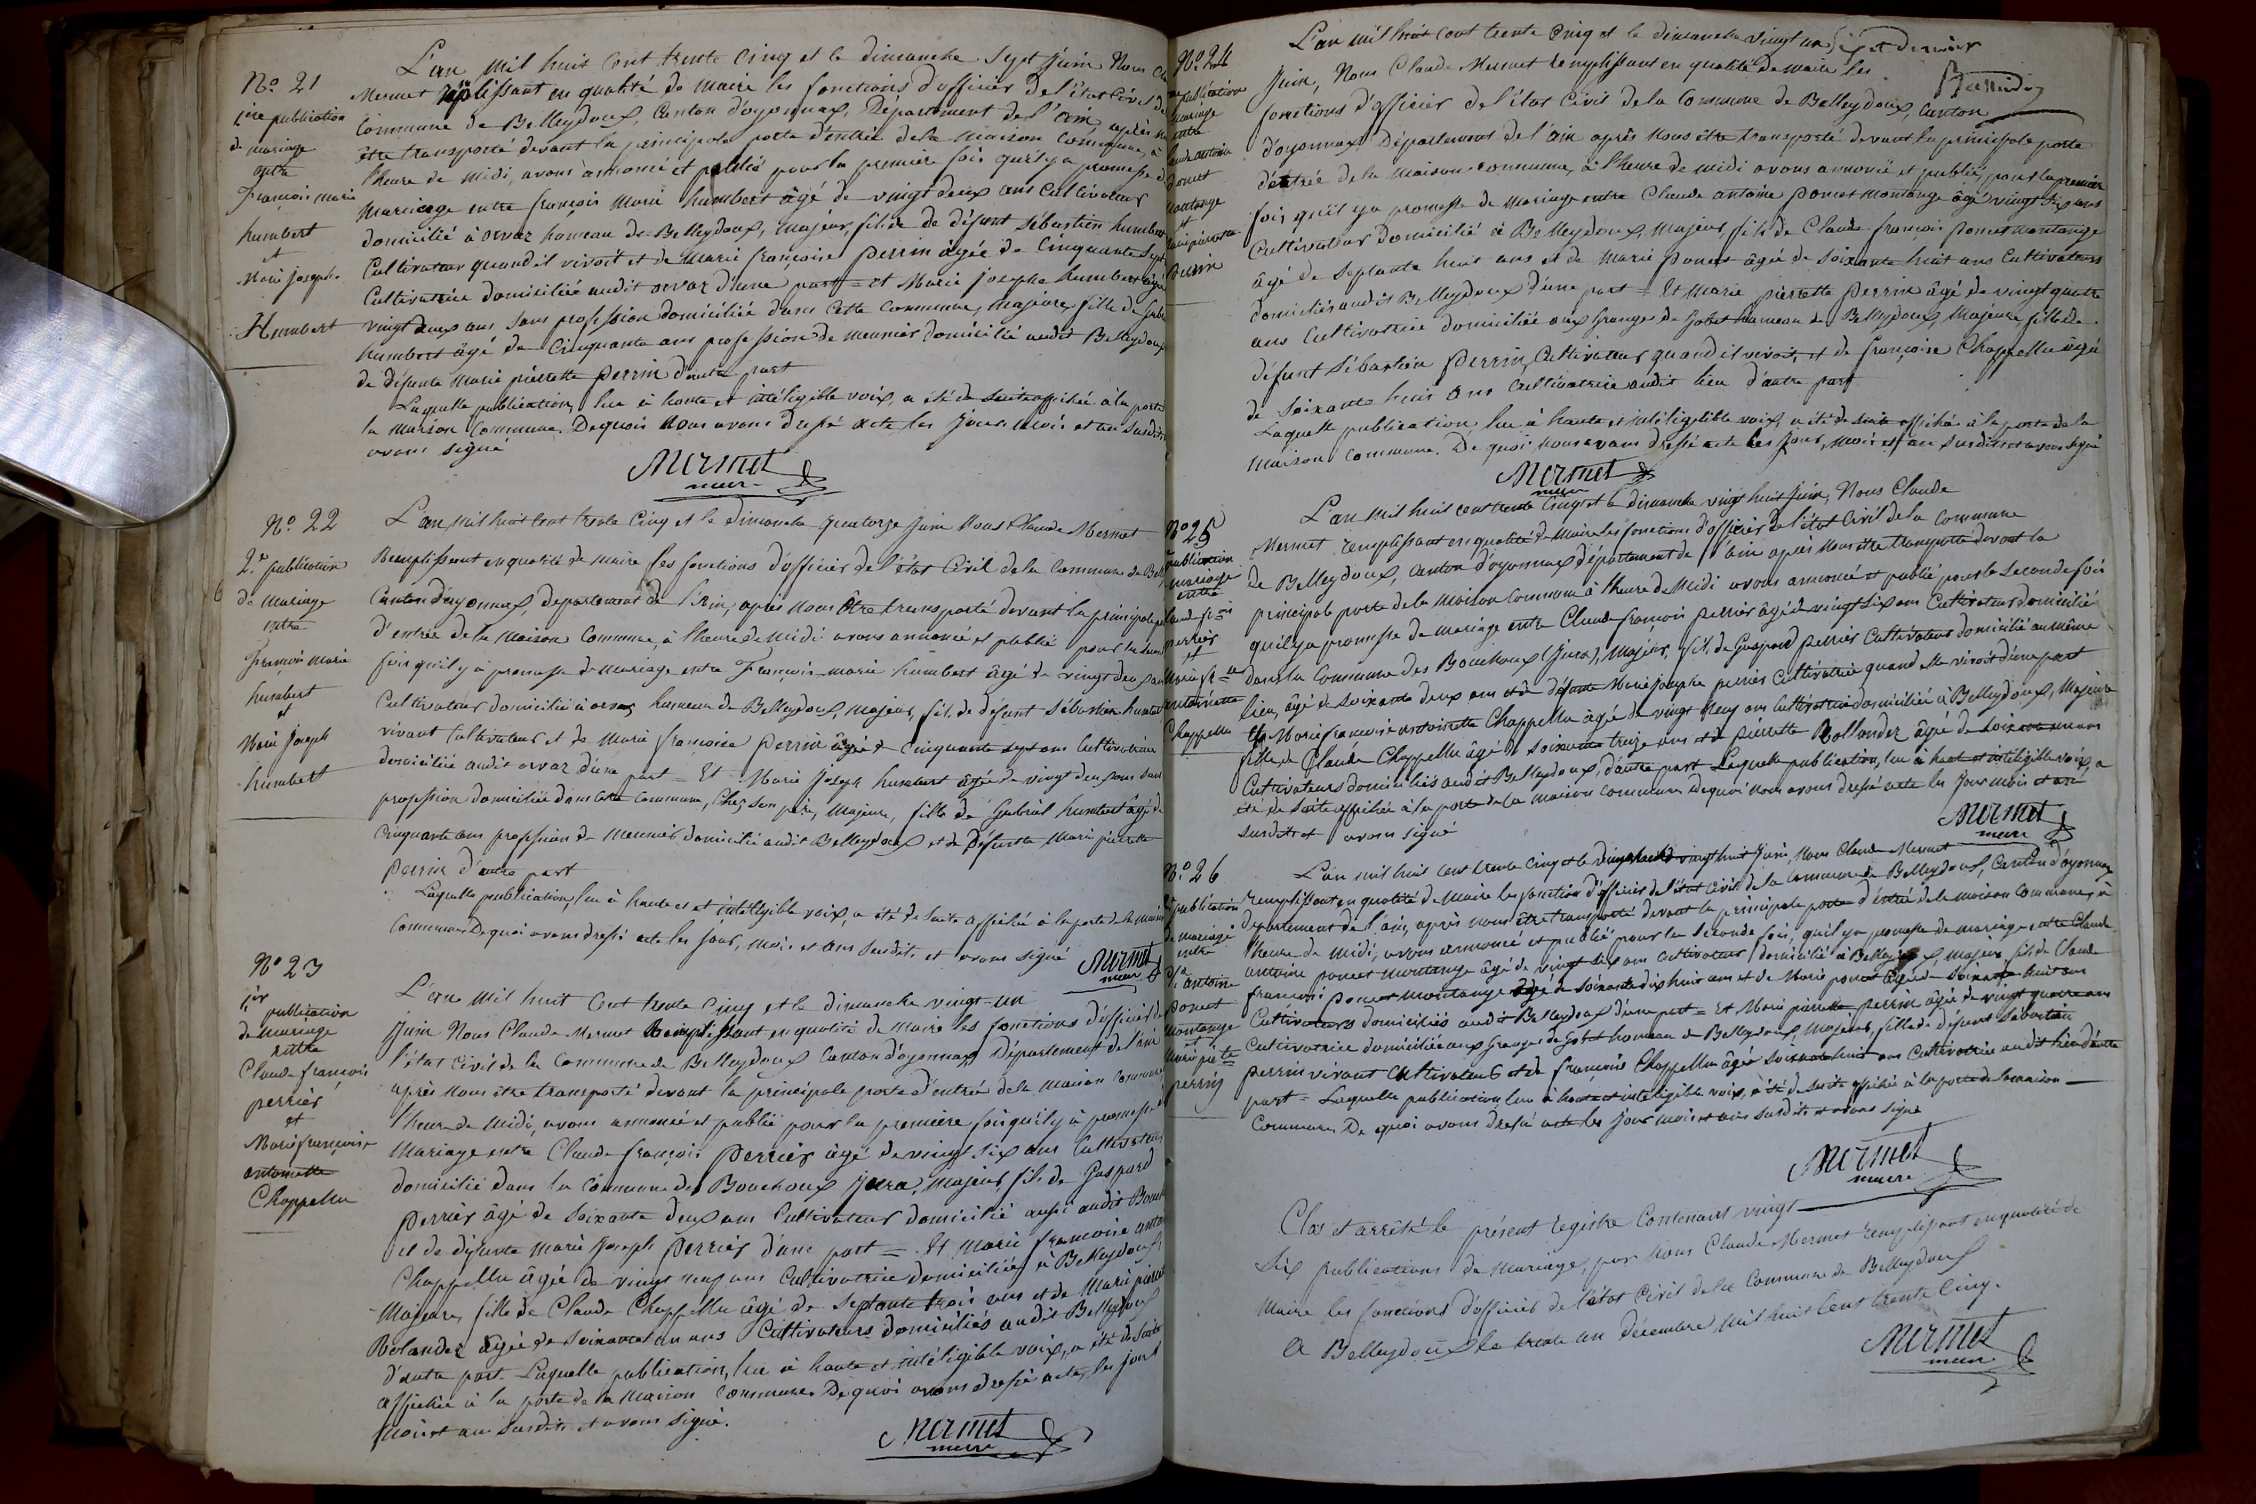 No. 21
1ère publication
de mariage
entre
François marie
humbert
et
Marie Josephe
Humbert
L'an mil huit cent trente cinq et le dimanche sept Juin Nous
Mermet remplissant en qualité de maire les fonctions d'officier de l'état Civil de
Commune de Belleydoux, Canton d'oyonnax, Département de l'ain, après
être transporté devant la principale porte d'entrée de la Maison Commune, à
l'heure de midi, avons annoncé et publié pour la premiere fois qu'il y a promesse de
Marriage entre françois Marie humbert âgé de vingt deux ans Cultivateur
domicilié à orvaz hameau de Belleydoux, majeur, fils de défunt Sébastien humbert
Cultivateur quand il vivoit et de Marie françoise Perrin âgée de Cinquante Sept
Cultivatrice domiciliée audit orvaz d'une part = et Marie Josephe humbert âgée
vingt deux ans sans profession domiciliée dans cette Commune, Majeure, fille de
humbert âgé de Cinquante ans profession de meunier domicilié audit Belleydoux
de défunte Marie pierrette perrin d'autre part
Laquelle publication, lue à haute et intéligible voix, a été de suite affichée à la porte
la Maison Commune. De quoi nous avons dressé acte les Jour, mois et an susdits
avons signé
Mermet
maire
No. 22
2.e publication
de Mariage
entre
François Marie
humbert
et
Marie Joseph
humbert
L'an mil huit cent trente Cinq et le dimanche quatorze Juin Nous Claude Mermet
Remplissant en qualité de maire les fonctions d'officier de l'état Civil de la Commune de
Canton d'oyonnax, département de l'Ain, après nous être transporté devant la principale
d'entrée de la Maison Commune, à l'heure de Midi avons annoncé et publié pour la
fois qu'il y a promesse de Mariage entre François-marie humbert âgé de vingt deux ans
Cultivateur domicilié à orvaz hameau de Belleydoux, Majeur, fils de defunt Sébastien humbert
vivant Cultivateur et de Marie françoise perrin âgée de Cinquante sept ans Cultivatrice
domiciliée audit orvaz d'une part = Et Marie Joseph humbert âgée de vingt deux ans sans
profession domiciliée dans cette Commune, chez son père, Majeure, fille de Gabriel humbert âgé de
Cinquante ans profession de Meunier domicilié audit Belleydoux et de Défunte Marie pierrette
perrin d'autre part
Laquelle publication, lue à haute et intéligible voix, a été de suite affichée à la porte de la maison
Commune De quoi avons dressé acte les Jour, Mois et ans susdits et avons signé
Mermet
maire
No 23
1.er publication
de Mariage
entre
Claude françois
perrier
et
Marie françoise
antoinette
Chappellu
L'an mil huit Cent trente Cinq et le dimanche vingt-un
Juin Nous Claude Mermet Remplissant en qualité de Maire les fonctions d'officier de
l'état Civil de la Commune de Belleydoux Canton d'oyonnax Département de l'ain
après nous être transporté devant la principale porte d'entrée de la Maison Commune
l'heure de Midi, avons annoncé et publié pour la première fois qu'il y a promesse de
Mariage entre Claude françois perrier âgé de vingt six ans Cultivateur
domicilié dans la Commune des Bouchoux Jura, Majeur, fils de Gaspard
perrier âgé de soixante deux ans Cultivateur domicilié aussi audit
et de défunte Marie Joseph perrier d'une part = Et Marie francoise
Chappellu âgée de vingt neuf ans Cultivatrice domiciliée à Belleydoux
Majeure, fille de Claude Chappellu âgé de septante trois ans et de Marie
Rolandez âgée de soixante un ans Cultivateurs domiciliés audit Belleydoux
d'autre part Laquelle publication, lue à haute et intéligible voix, a été de suite
affichée à la porte de la Maison Commune. De quoi avons dressé acte, les jour
mois et an susdits et avons signé.
Mermet
maire
No. 24
publication
mariage
entre
antoine
poncet
montange
et
perrin
L'an mil huit cent trente Cinq et le dimanche vingt un
Six et dernier
Juin, Nous Claude Mermet remplissant en qualité de maire les
fonctions d'officier de l'état Civil de la Commune de Belleydoux, Canton
d'oyonnax Département de l'ain après Nous être transporté devant la principale porte
d'entrée de la Maison commune, à l'heure de midi avons annoncé et publié, pour la premier
fois qu'il y a promesse de Mariage entre Claude antoine poncet montange âgé vingt Six ans
Cultivateur domicilié à Belleydoux, Majeur, fils de Claude françois poncet montange
âgé de septante huit ans et de Marie poncet âgée de soixante huit ans Cultivateurs
domiciliés audit Belleydoux d'une part = Et Marie pierrette perrin âgé de vingt quatre
ans Cultivatrice domiciliée aux Granges de Gobet hameau de Belleydoux, Majeure fille de
défunt Sébastien perrin, Cultivateur quand il vivoit, et de françoise Chappellu âgée
de soixante huit ans Cultivatrice audit lieu d'autre part
Laquelle publication lue à haute et intéligible voix, a été de suite affichée à la porte de la
Maison Commune. De quoi nous avons dressé acte les Jour, Mois et an susdits et avons signé
Mermet
maire
No 25
publication
mariage
entre
perrier
et
antoinette
Chappellu
L'an mil huit cent trente Cinq et le dimanche vingt huit Juin, Nous Claude
Mermet remplissant en qualité de Maire les fonctions d'officier de l'état Civil de la Commune
de Belleydoux, Canton d'oyonnax département de l'ain après Nous être transporté devant la
principale porte de la Maison Commune à l'heure de Midi avons annoncé et publié pour la seconde fois
qu'il y a promesse de Mariage entre Claude françois perrier âgé de vingt six ans Cultivateur domicilié
dans la Commune des Bouchoux (Jura), Majeur, fils de Gaspard perrier Cultivateur domicilié au même
lieu, âgé de soixante deux ans et de défunte Marie Josephe perrier Cultivatrice quand elle vivoit d'une part
Et Marie françoise antoinette Chappellu âgé de vingt neuf ans Cultivatrice domicilié à Belleydoux, Majeure
fille de Claude Chappellu âgé de soixante treize ans et de pierrette Rollandez âgée de soixante un ans
Cultivateurs domiciliés audit Belleydoux, d'autre part Laquelle publication, lue à haute et intéligible voix, a
été de suite affichée à la porte de la Maison Commune De quoi nous avons dressé acte les Jour mois et an
susdits et avons signé
Mermet
maire
No. 26
publication
de mariage
entre
antoine
poncet
Montange
et
Marie
perrin
L'an mil huit cent trente Cinq et le dimanche vingt huit Juin, Nous Claude Mermet
remplissant en qualité de Maire les fonction d'officier de l'état Civil de la Commune de Belleydoux, Canton d'oyonnax
département de l'ain, après nous être transporté devant la principale porte d'entré de la maison Commune, à
l'heure de Midi, avons annoncé et publié pour la seconde fois, qu'il y a promesse de mariage entre Claude
antoine poncet montange âgé de vingt six ans Cultivateur, domicilié à Belleydoux, majeur fils de Claude
françois poncet Montange âgé de soixante dix huit ans et de Marie poncet âgée de soixante huit ans
Cultivateurs domiciliés audit Belleydoux d'une part = Et Marie pierrette perrin âgée de vingt quatre ans
Cultivatrice domiciliée aux Granges de Gobet hameau de Belleydoux, Majeure, fille de défunt Sebastien
perrin vivant Cultivateur et de françoise Chappellu âgée soixante huit ans Cultivatrice audit lieu d'autre
part = Laquelle publication lue à haute et intéligible voix, a été de suite affichée à la porte de la maison
Commune De quoi avons dressé acte les Jour mois et an susdits et avons signé
Mermet
maire
Clos et arrêté le présent registre Contenant vingt
Six publications de Mariage, par Nous Claude Mermet remplissant en qualité de
Maire les fonctions d'officier de l'état Civil de la Commune de Belleydoux
A Belleydoux le trente un Décembre Mil huit Cent trente Cinq.
Mermet
maire